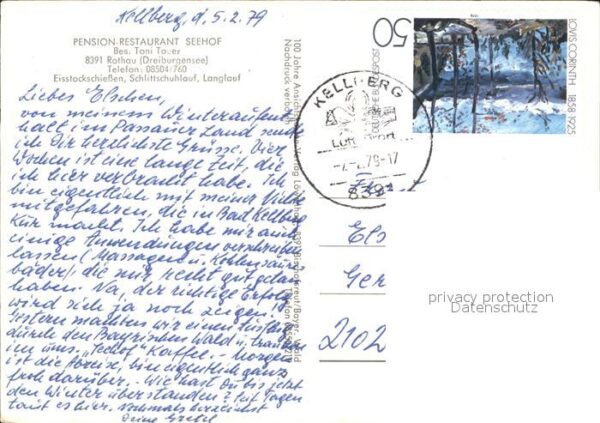 Kellberg, d. 5.2.79
PENSION-RESTAURANT SEEHOF
Bes. Toni Tauer
8391 Rathau (Dreiburgensee)
Telefon: 08504/760
Eisstockschießen, Schlittschuhlauf, Langlauf
Liebes Elschen,
von meinem Winteraufent-
halt im Passauer Land sende
ich Dir herzlichste Grüsse. Vier
Wochen ist eine lange Zeit, die
ich hier verbracht habe. Ich
bin eigentlich mit meiner
mitgefahren, die in Bad Kellberg
Kur macht. Ich habe mir auch
einige Anwendungen verschreiben
lassen (Massagen u. Kohlensäure
bäder) die mir recht gut getan
haben. Na, der richtige Erfolg
wird sich ja noch zeigen!
Gestern machten wir einen Ausflug
durch den Bayrischen Wald u. tranken
im "Seehof" Kaffee. - Morgen
ist die Abreise, bin eigentlich ganz
froh darüber. - Wie hast Du bis jetzt
den Winter überstanden? Seit Tagen
taut es hier. Nochmals herzlichst
Deine Gretel
100 Jahre
Nachdruck verboten
50
DEUTSCHE BUNDESPOST
LOVIS CORINTH 1858-1925
KELLBERG
Luft
79-17
8391
Els
Ger
2102
privacy protection
Datenschutz